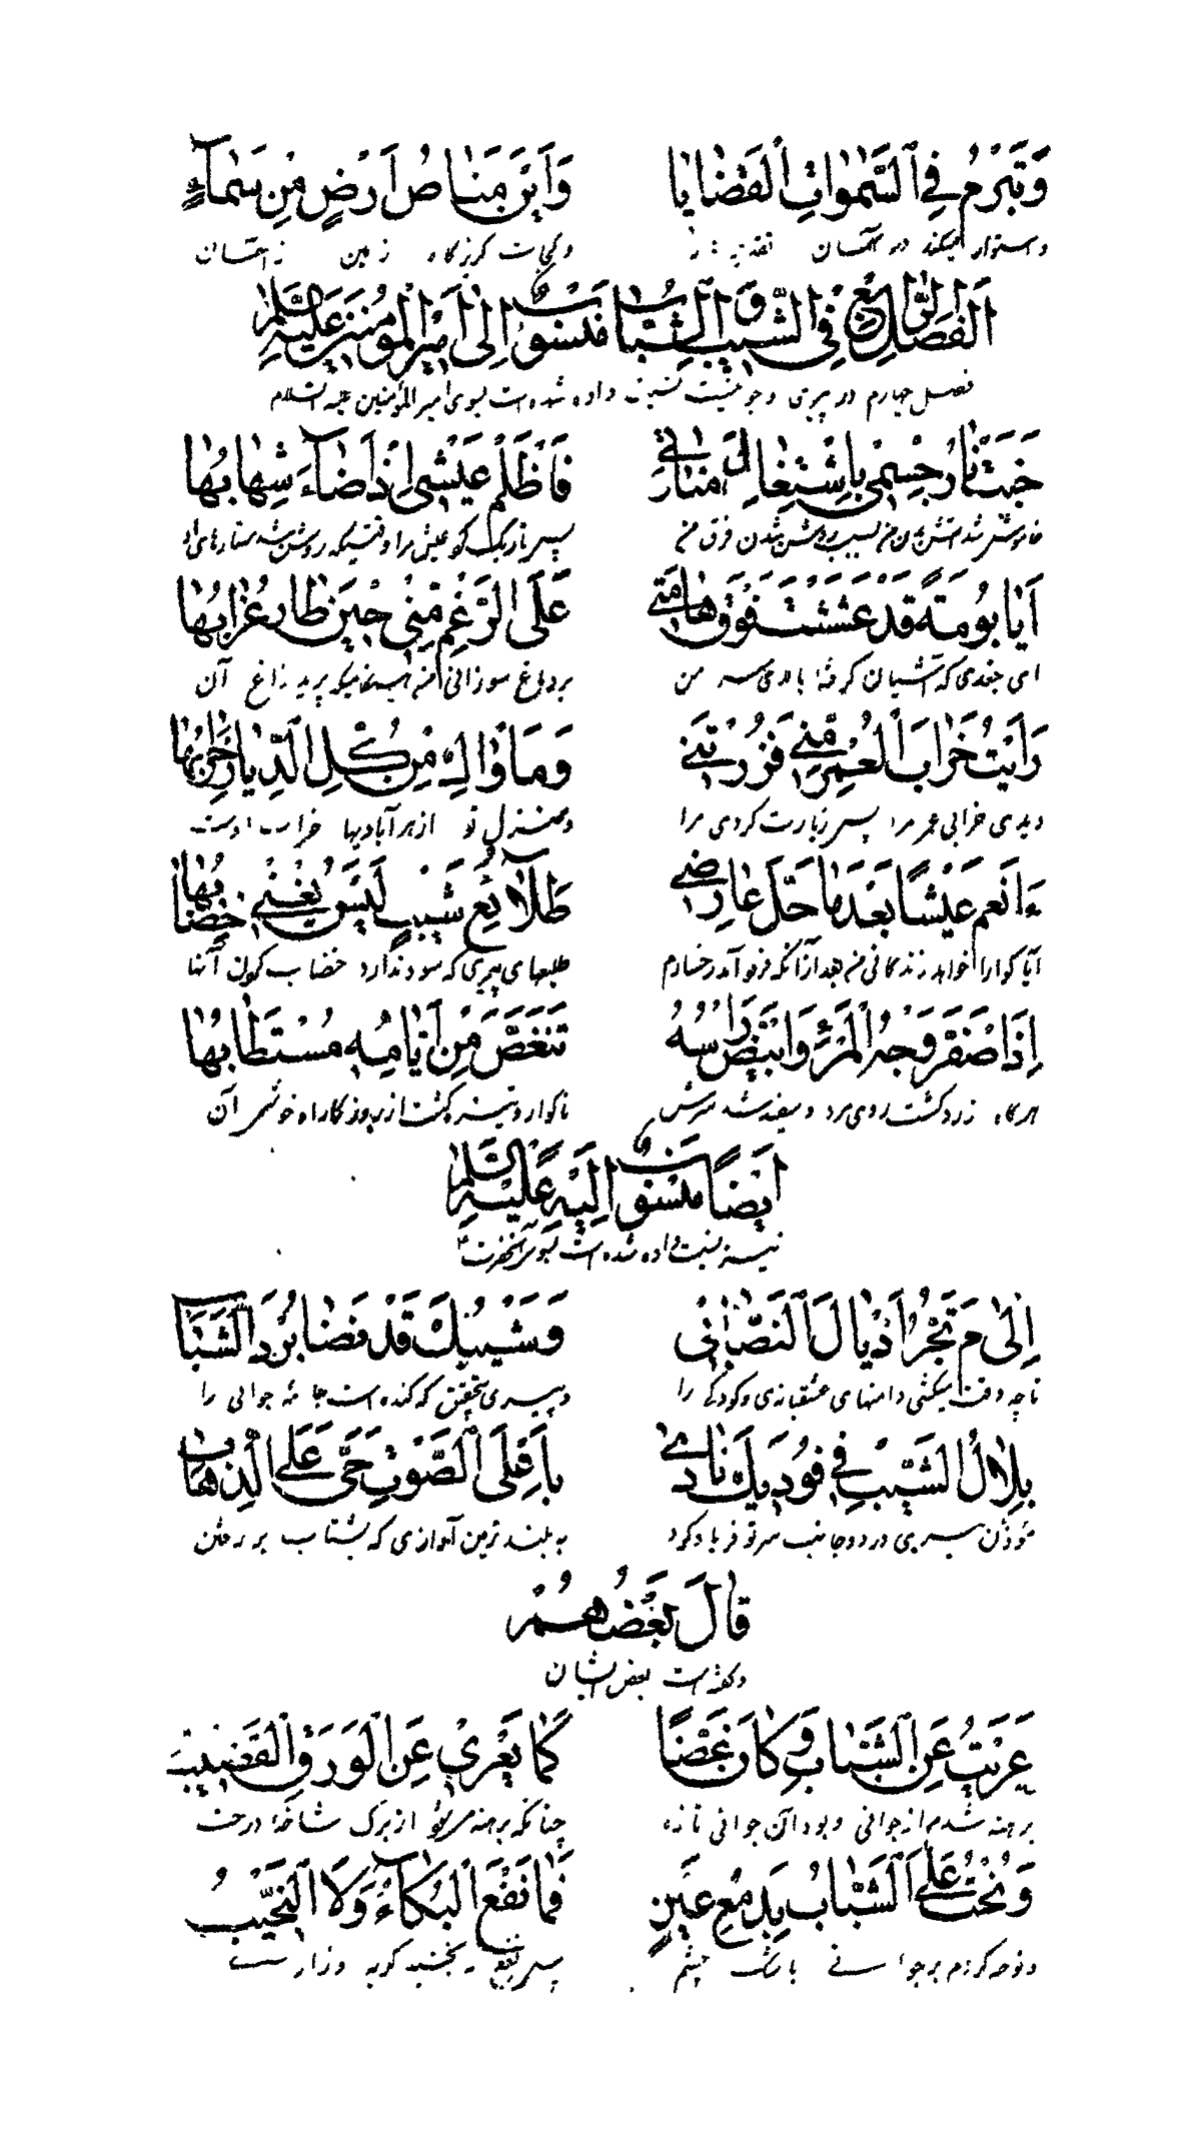 وَتُبْرَمُ فِي السَّمٰوَاتِ الْقَضَايَا وَأَيْنَ مَنَاصُ أَرْضٍ مِنْ سَمَاءٍ
و استوار میکند در آسمان و کجاست گریزگاه زمین ز آسمان
اَلْفَصْلُ الرَّابِعُ فِي الشَّيْبِ وَ الشَّبَابِ مَنْسُوبٌ إِلَى أَمِيرِ الْمُؤْمِنِينَ عَلَيْهِ السَّلَامُ
فصل چهارم در پیری و جوانیست نسبت داده شده است بسوی امیر المؤمنین علیه السلام
خَبَتْ نَارُ جِسْمِي بِاشْتِعَالِ مَفَارِقِي فَأَظْلَمَ عَيْشِي إِذْ أَضَاءَ شِهَابُهَا
خاموش شد آتش بدن من بسبب روشن شدن فرق من پس تاریک کو عیش مرا وقتیکه روشن شد ستارهای او
أَيَا بُومَةً قَدْ عَشَّشَتْ فَوْقَ هَامَتِي عَلَى الرَّغْمِ مِنِّي حِينَ طَارَ غُرَابُهَا
ای جغدی که آشیان کرفته بالای سر من بر دماغ سوزانی من هنگامیکه پرید زاغ آن
رَأَيْتِ خَرَابَ الْعُمْرِ مِنِّي فَزُرْتِنِي وَمَأْوَاكِ مِنْ كُلِّ الدِّيَارِ خَرَابُهَا
دیدی خرابی عمر مرا پس زیارت کردی مرا و منزل تو از هر آبادیها خراب اوست
ءَأَنْعَمُ عَيْشًا بَعْدَ مَا حَلَّ عَارِضِي طَلَائِعُ شَيْبٍ لَيْسَ يُغْنِي خِضَابُهَا
آیا کوارا خواهد زندکانی من بعد از آنکه فرود آمد رخسارم طلیعهای پیری که سود ندارد خضاب کردن آنها
إِذَا اصْفَرَّ وَجْهُ الْمَرْءِ وَابْيَضَّ رَأْسُهُ تَنَغَّصَ مِنْ أَيَّامِهِ مُسْتَطَابُهَا
هرکاه زرد کشت روی مرد و سفید شد سرش ناکوار و تیره کشت از روزکار او خوشتر آن
أَيْضًا مَنْسُوبٌ إِلَيْهِ عَلَيْهِ السَّلَامُ
نیز نسبت داده شده است بسوی آنحضرت
إِلَى مَ تَجُرُّ أَذْيَالَ التَّصَابِي وَشَيْبُكَ قَدْ نَضَا بُرْدَ الشَّبَابِ
تا چه وقت میکشی دامنهای عشقبازی و کودکی را و پیری تو بتحقیق که کنده است جامه جوانی را
بِلَالُ الشَّيْبِ فِي فَوْدَيْكَ نَادَى بِأَعْلَى الصَّوْتِ حَيَّ عَلَى الذِّهَابِ
مؤذن پیری در دو جانب سر تو فریاد کرد به بلند ترین آوازی که بشتاب بر رفتن
قَالَ بَعْضُهُمْ
و کفته است بعض ایشان
عَرِيتُ عَنِ الشَّبَابِ وَ كَانَ غَضًّا كَمَا يَعْرِي عَنِ الْوَرَقِ الْقَضِيبُ
برهنه شدم از جوانی و بود آن جوانی تازه چنانکه برهنه میشود از برک شاخه درخت
وَنُحْتُ عَلَى الشَّبَابِ بِدَمْعِ عَيْنٍ فَمَا نَفَعَ الْبُكَاءُ وَلَا النَّحِيبُ
و نوحه کردم بر جوانی باشک چشم پس نفع نبخشید کریه و زاری